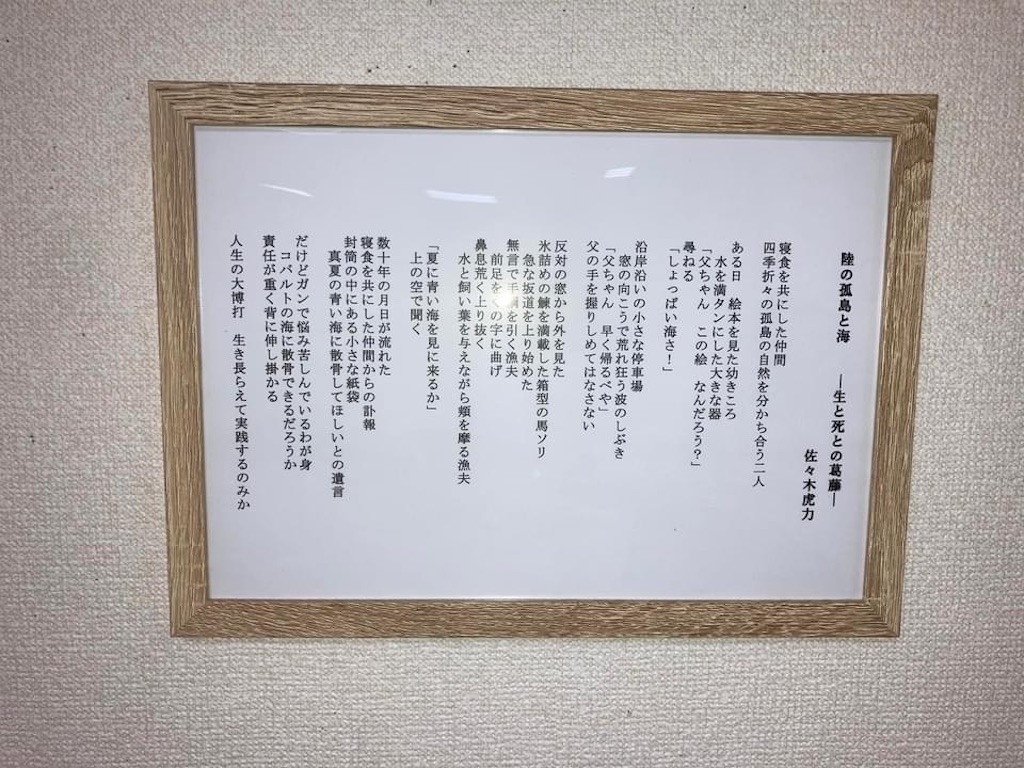 陸の孤島と海　　―生と死との葛藤―
佐々木虎力
寝食を共にした仲間
四季折々の孤島の自然を分かち合う二人
ある日　絵本を見た幼きころ
水を満タンにした大きな器
「父ちゃん　この絵　なんだろう？」
尋ねる
「しょっぱい海さ！」
沿岸沿いの小さな停車場
窓の向こうで荒れ狂う波のしぶき
「父ちゃん　早く帰るべや」
父の手を握りしめてはなさない
反対の窓から外を見た
氷詰めの鰊を満載した箱型の馬ソリ
急な坂道を上り始めた
無言で手綱を引く漁夫
前足をくの字に曲げ
鼻息荒く上り抜く
水と飼い葉を与えながら頬を摩る漁夫
「夏に青い海を見に来るか」
上の空で聞く
数十年の月日が流れた
寝食を共にした仲間からの訃報
封筒の中にある小さな紙袋
真夏の青い海に散骨してほしいとの遺言
だけどガンで悩み苦しんでいるわが身
コバルトの海に散骨できるだろうか
責任が重く背に伸し掛かる
人生の大博打　生き長らえて実践するのみか